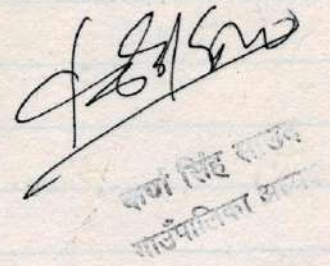 कर्ण सिंह साउद
गाउँपालिका अध्यक्ष